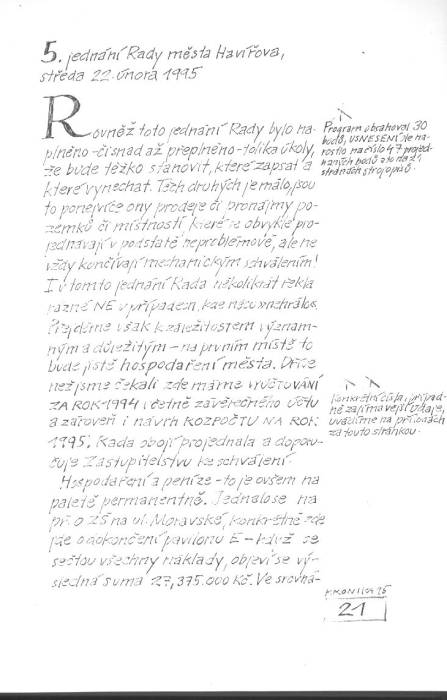 5. jednání Rady města Havířova,
středa 22. února 1995
Rovněž toto jednání Rady bylo na-
plněno - či snad až přeplněno - tolika úkoly,
že bude těžko stanovit, které zapsat a
které vynechat. Těch druhých je málo, jsou
to ponejvíce ony prodeje či pronájmy po-
zemků či místností, které se obvykle pro-
jednávají v podstatě neproblémově, ale ne
vždy končívají mechanickým schválením!
I v tomto jednání Rada několikrát řekla
razné NE v případech, kde
Přejděme však k záležitostem význam-
ným a důležitým - na prvním místě to
bude jistě hospodaření města. Dříve
než jsme čekali zde máme VYÚČTOVÁNÍ
ZA ROK 1994 včetně závěrečného účtu
a zároveň i návrh ROZPOČTU NA ROK
1995. Rada obojí projednala a doporu-
čuje Zastupitelstvu ke schválení.
Hospodaření a peníze - to je ovšem na
paletě permanentně. Jednalo se na
př. o ZŠ na ul. Moravské, konkrétně zde
jde o dokončení pavilonu E - když se
sečtou všechny náklady, objeví se vý-
sledná suma 27,375.000 Kč. Ve srovná-
Program obsahoval 30
bodů, USNESENÍ ale na-
rostlo na číslo 47 projed-
naných bodů a to na 21
stranách strojopisu.
Konkrétní čísla, případ-
ně zajímavější údaje,
uvádíme na přílohách
za touto stránkou.
21